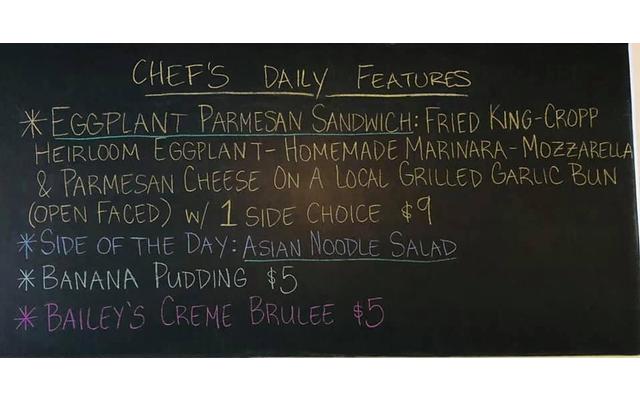 CHEF'S DAILY FEATURES
* EGGPLANT PARMESAN SANDWICH: FRIED KING-CROPP
HEIRLOOM EGGPLANT- HOMEMADE MARINARA - MOZZARELLA
& PARMESAN CHEESE ON A LOCAL GRILLED GARLIC BUN
(OPEN FACED) W/ 1 SIDE CHOICE $9
* SIDE OF THE DAY: ASIAN NOODLE SALAD
* BANANA PUDDING $5
* BAILEY'S CREME BRULEE $5